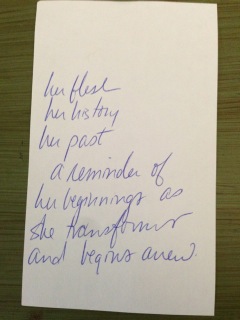 her flesh
her history
her past
a reminder of
her beginnings as
she transforms
and begins anew.